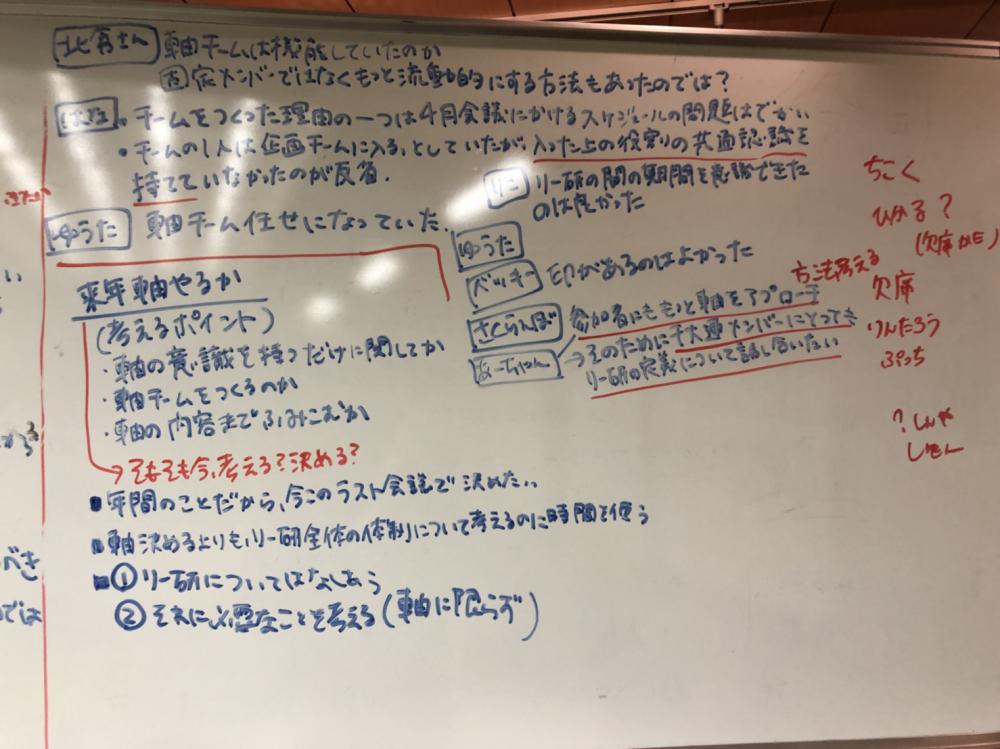 軸チームは機能していたのか
固定メンバーではなくもっと流動的にする方法もあったのでは？
・チームをつくった理由の一つは4月会議にかけるスケジュールの問題はでかい
・チームの1人は企画チームに入る、としていたが、入った上の役割りの共通認識を
持てていなかったのが反省.
ゆうた 軸チーム任せになっていた.
りこ リー研の間の期間を意識できた
のは良かった
ゆうた
ベッキー 印があるのはよかった
さくらんぼ 参加者にももっと軸をアプローチ
方法考える
あーちゃん →そのために千大連メンバーにとっての
リー研の定義について話し合いたい
来年軸やるか
(考えるポイント)
・軸の意識を持つだけに関してか
・軸チームをつくるのか
・軸の内容までふみこむか
→そもそも今、考える?決める?
■年間のことだから、今このラスト会議で決めたい
■軸決めるよりも、リー研全体の体制について考えるのに時間を使う
■①リー研についてはなしあう
②それに必要なことを考える(軸に限らず)
ちこく
ひかる?
欠席
りんたろう
ぷっち
?しんや
べき
では